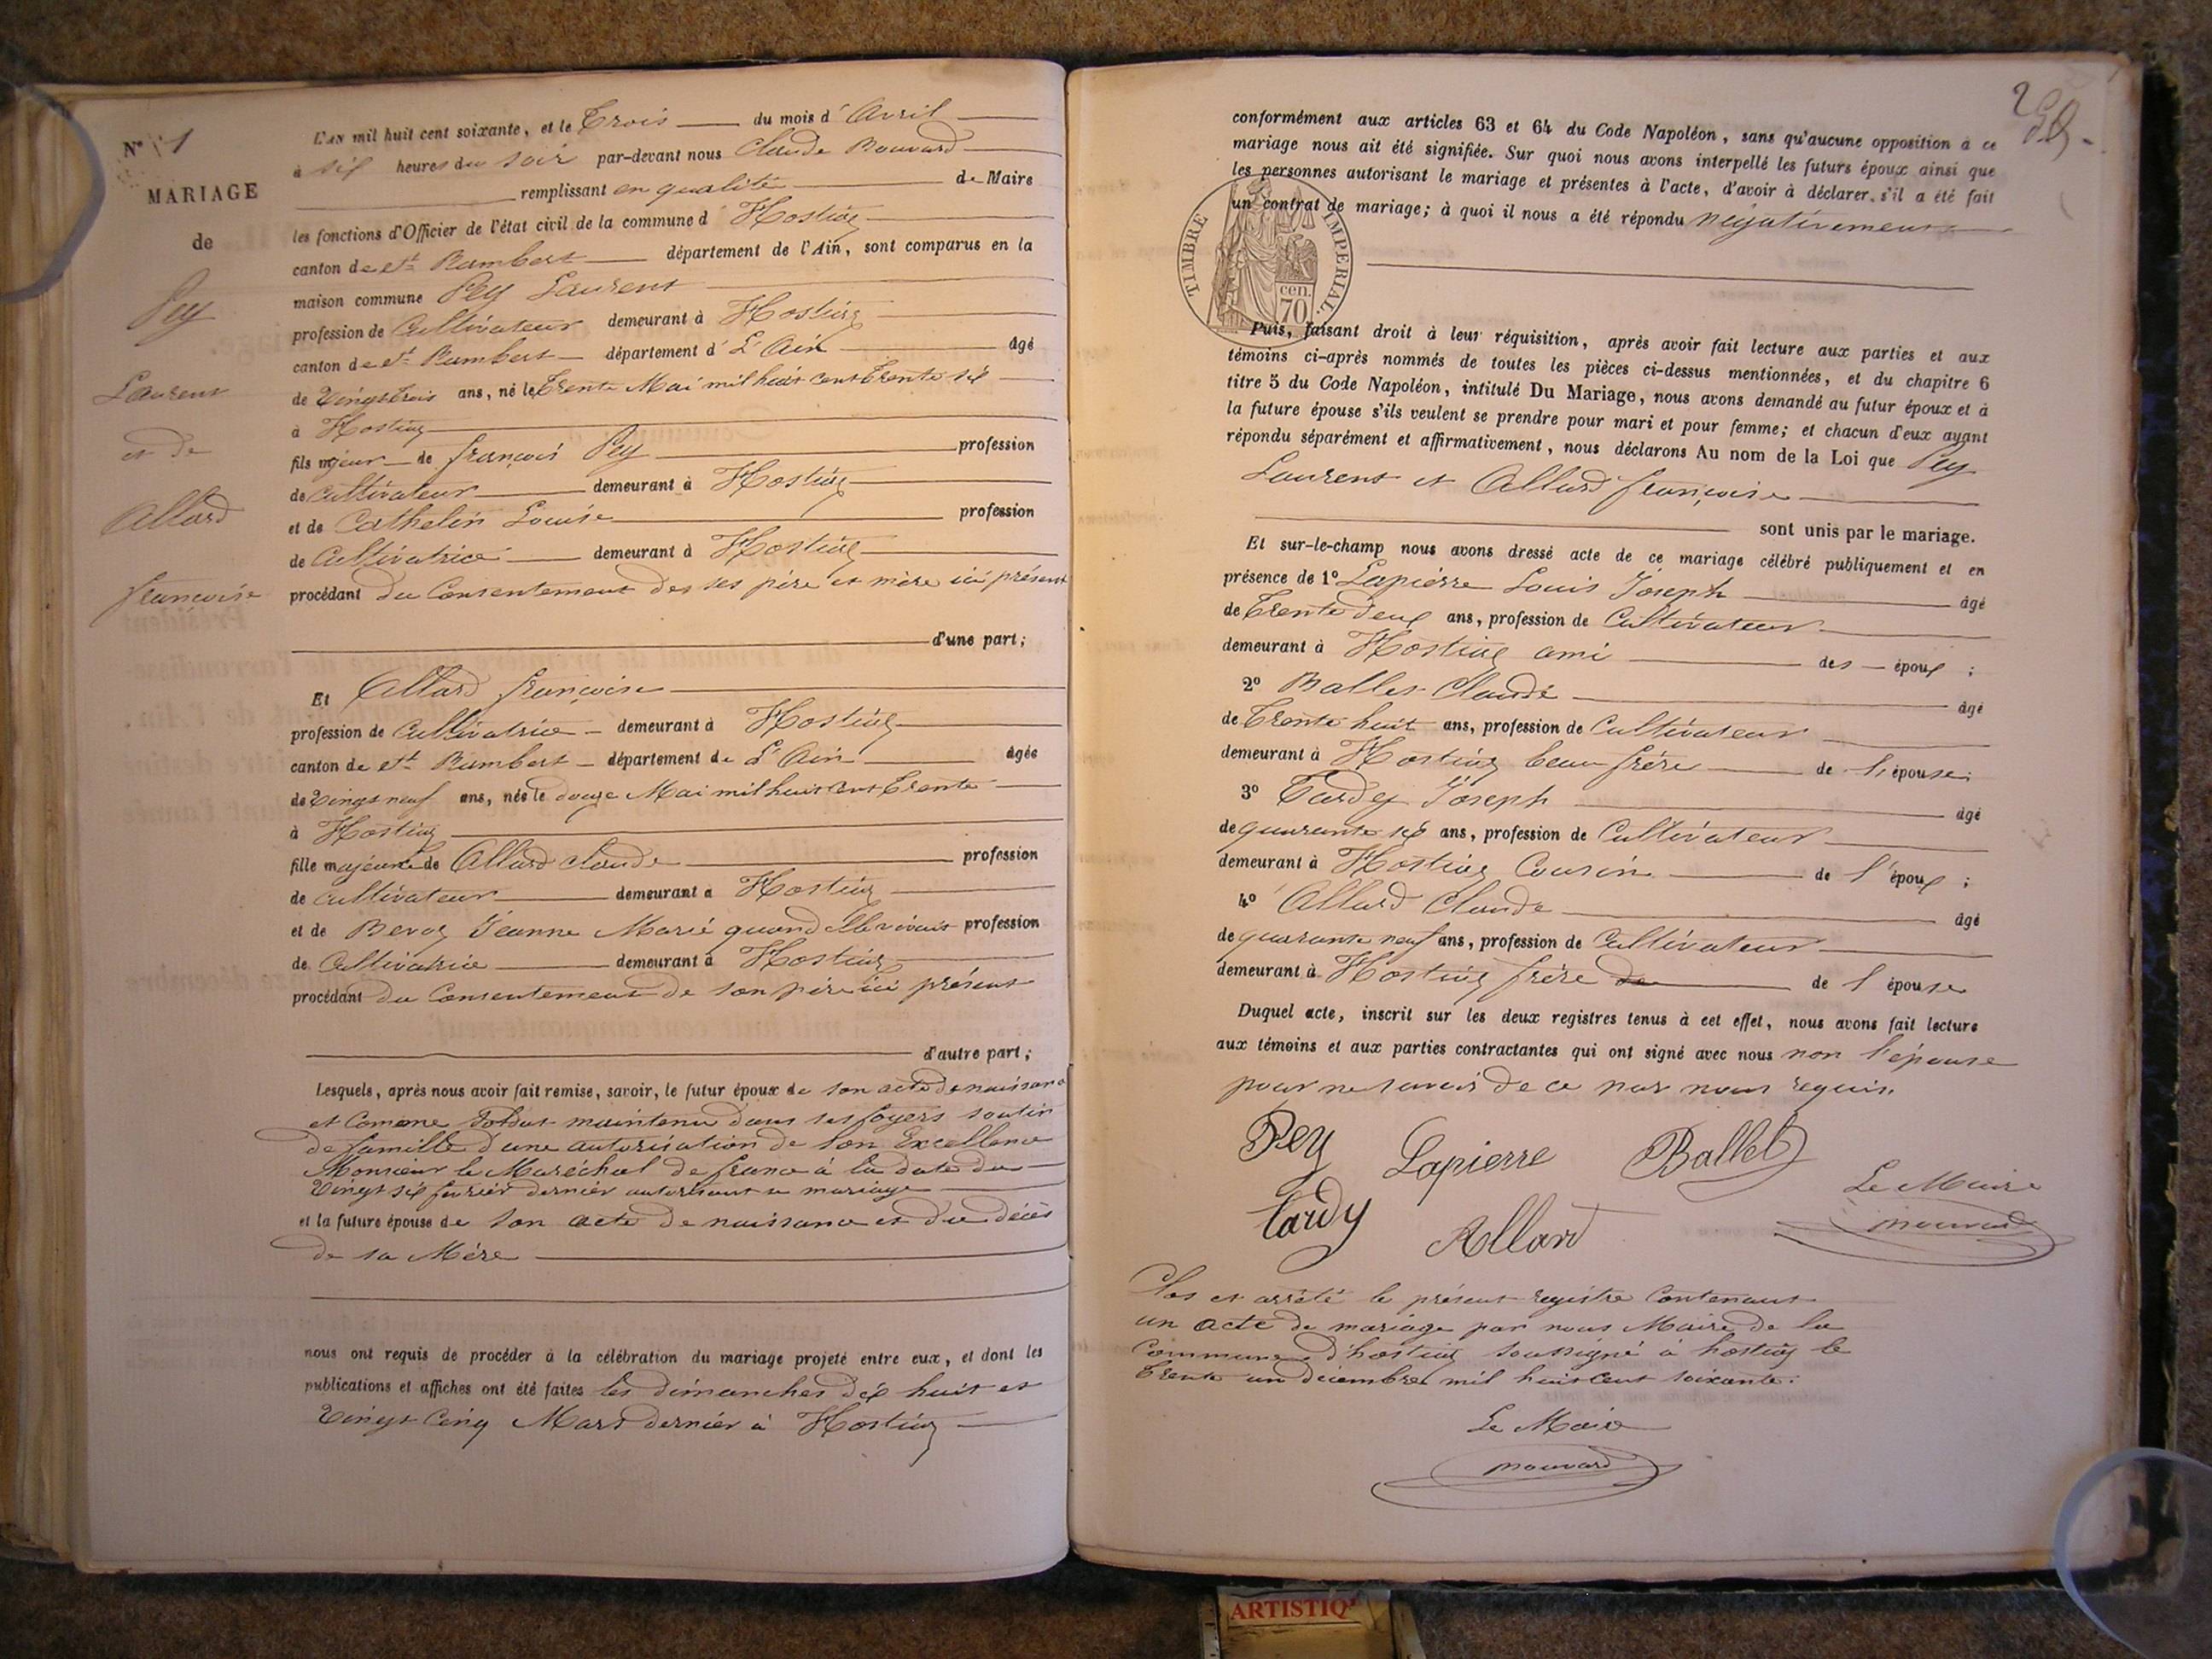 N° 1
MARIAGE
de
Pey
Laurent
et de
Allard
françoise
L'an mil huit cent soixante, et le Trois du mois d' Avril
à six heures du soir par-devant nous Claude Bouvard
remplissant en qualité de Maire
les fonctions d'Officier de l'état civil de la commune d Hostiaz
canton de St Rambert département de l'Ain, sont comparus en la
maison commune Pey Laurent
profession de Cultivateur demeurant à Hostiaz
canton de St Rambert département d L'Ain âgé
de Vingt trois ans, né le Trente Mai mil huit cent Trente six
à Hostiaz
fils majeur de françois Pey profession
de Cultivateur demeurant à Hostiaz
et de Cathelin Louise profession
de Cultivatrice demeurant à Hostiaz
procédant du Consentement des ses père et mère ici présent
d'une part;
Et Allard françoise
profession de Cultivatrice demeurant à Hostiaz
canton de St Rambert département de L'Ain âgée
de Vingt neuf ans, née le douze Mai mil huit cent Trente
à Hostiaz
fille majeure de Allard Claude profession
de Cultivateur demeurant à Hostiaz
et de Bevoz Jeanne Marie quand elle vivait profession
de Cultivatrice demeurant à Hostiaz
procédant du Consentement de son père ici présent
d'autre part;
Lesquels, après nous avoir fait remise, savoir, le futur époux de son acte de naissance
et Comme Soldat maintenu dans ses foyers soutien
de famille d'une autorisation de Son Excellence
Monsieur le Maréchal de france à la date du
Vingt six fevrier dernier autorisant le mariage
et la future épouse de Son acte de naissance et du décès
de sa Mère
nous ont requis de procéder à la célébration du mariage projeté entre eux, et dont les
publications et affiches ont été faites les dimanches dix huit et
Vingt Cinq Mars dernier à Hostiaz
conformément aux articles 63 et 64 du Code Napoléon, sans qu'aucune opposition à ce
mariage nous ait été signifiée. Sur quoi nous avons interpellé les futurs époux ainsi que
les personnes autorisant le mariage et présentes à l'acte, d'avoir à déclarer s'il a été fait
un contrat de mariage; à quoi il nous a été répondu négativement
TIMBRE IMPERIAL
70 cen.
Puis, faisant droit à leur réquisition, après avoir fait lecture aux parties et aux
témoins ci-après nommés de toutes les pièces ci-dessus mentionnées, et du chapitre 6
titre 5 du Code Napoléon, intitulé Du Mariage, nous avons demandé au futur époux et à
la future épouse s'ils veulent se prendre pour mari et pour femme; et chacun d'eux ayant
répondu séparément et affirmativement, nous déclarons Au nom de la Loi que Pey
Laurent et Allard françoise
sont unis par le mariage.
Et sur-le-champ nous avons dressé acte de ce mariage célébré publiquement et en
présence de 1° Lapierre Louis Joseph âgé
de Trente Deux ans, profession de Cultivateur
demeurant à Hostiaz ami des époux ;
2° Ballet Claude âgé
de Trente huit ans, profession de Cultivateur
demeurant à Hostiaz beau frère de l'épouse;
3° Tardy Joseph âgé
de quarante six ans, profession de Cultivateur
demeurant à Hostiaz Cousin de l'époux ;
4° Allard Claude âgé
de quarante neuf ans, profession de Cultivateur
demeurant à Hostiaz frère de l'épouse
Duquel acte, inscrit sur les deux registres tenus à cet effet, nous avons fait lecture
aux témoins et aux parties contractantes qui ont signé avec nous non l'épouse
pour ne savoir de ce par nous requis.
Pey Lapierre Ballet
Le Maire
Tardy Allard Bouvard
Clos et arrêté le présent registre Contenant
un acte de mariage par nous Maire de la
Commune d'hostiaz soussigné à hostiaz le
Trente un décembre mil huit cent soixante.
Le Maire
Bouvard
ARTISTIQ